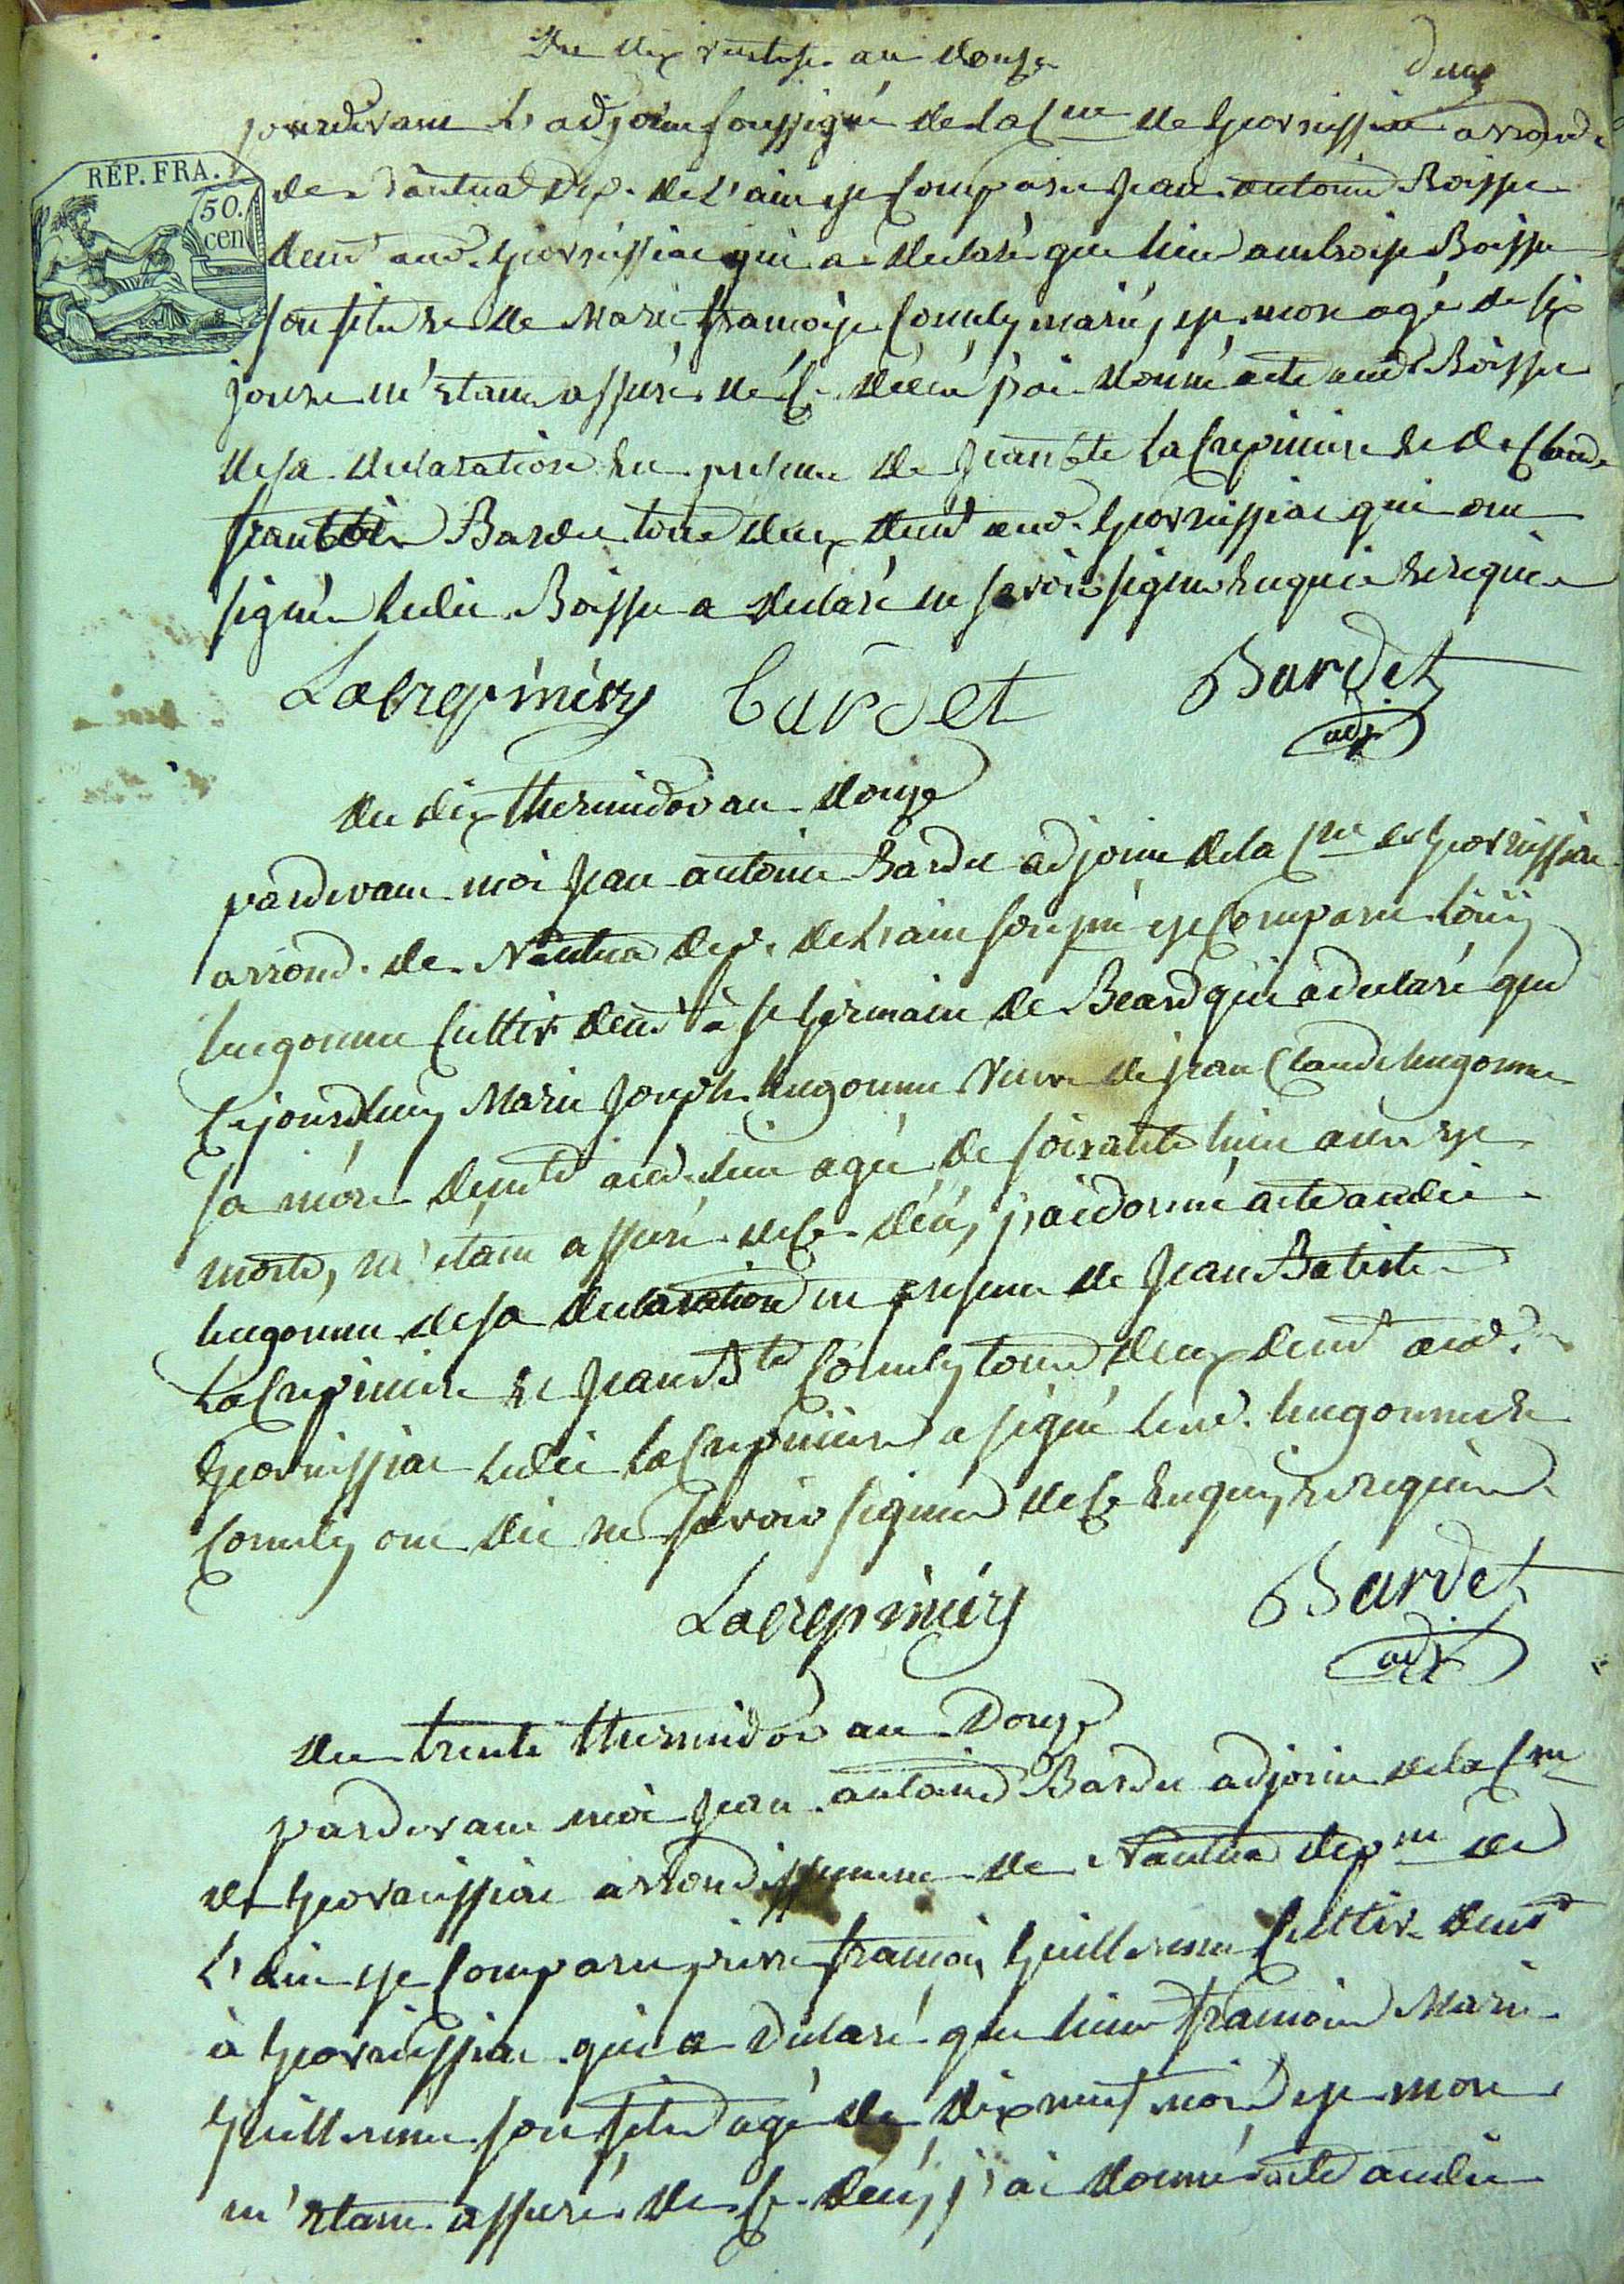 Du dix ventose an douze
deux
pardevant L'adjoint soussigné de la Cne de Geovrissiat arrond.
RÉP. FRA.
50.
cen
de Nantua dep. de L'ain est Comparu Jean antoine Boisse
demt aud. Geovrissiat qui a declaré que hier ambroise Boisse
son fils et de Marie françoise Comuty mariés, est mort agé de six
jours m'etant assuré de Ce décé j'ai donné acte aud. Boisse
de sa declaration en presence de Jean Bte LaCrepiniere et de Claude
Bardet tous deux demt aud. Geovrissiat qui ont
signés ledit Boisse a declaré ne savoir signer enquis et requis
Lacrepiniere bardet Bardet
adj.
du dix thermidor an douze
pardevant moi Jean antoine Bardet adjoint de la Cne de Geovrissiat
arrond. de Nantua dep. de L'ain sousné est Comparu Louis
hugonnet Cultiv. demt à St Germain de Beard qui a declaré que
Cejourdhuy Marie Joseph hugonnet Veuve de jean Claude hugonnet
sa mere demte aud. lieu agée de soixante huit ans est
morte, m'etant assuré de Ce décé, j'ai donné acte audit
hugonnet de sa declaration en presence de Jean Batiste
LaCrepiniere et Jean Bte Comuty tous deux demt aud.
Geovrissiat ledit LaCrepiniere a signé led. hugonnet et
Comuty ont dit ne savoir signer de Ce enquis et requis
Lacrepiniere Bardet
adj.
du trente thermidor an Douze
pardevant moi Jean antoine Bardet adjoint de la Cne
de Geovrissiat arrondissement de Nantua depmt de
L'ain est Comparu pierre françois Guillermet Cultiv. demt
à Geovrissiat qui a declaré que hier françois Marie
Guillermet son fils agé de dix neuf mois est mort
m'etant assuré de Ce décé, j'ai donné acte audit